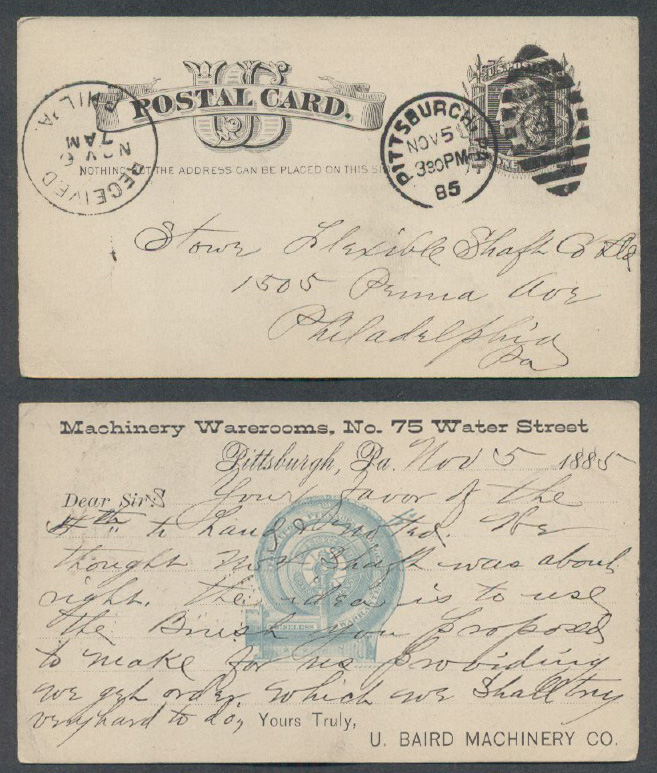 US
POSTAL CARD.
NOTHING BUT THE ADDRESS CAN BE PLACED ON THIS SIDE
RECEIVED
NOV 6
7 AM
PHIL'A.
PITTSBURGH, PA.
NOV 5
330PM
85
Stowe Flexible Shaft Co Ltd
1505 Penna Ave
Philadelphia
Pa
Machinery Warerooms, No. 75 Water Street
Pittsburgh, Pa. Nov 5 1885
Dear Sirs Your favor of the
to hand & noted. We
thought No 4 Shaft was about
right. the idea is to use
the Brush you propose
to make for us providing
we get order, which we shall try
very hard to do, Yours Truly,
U. BAIRD MACHINERY CO.